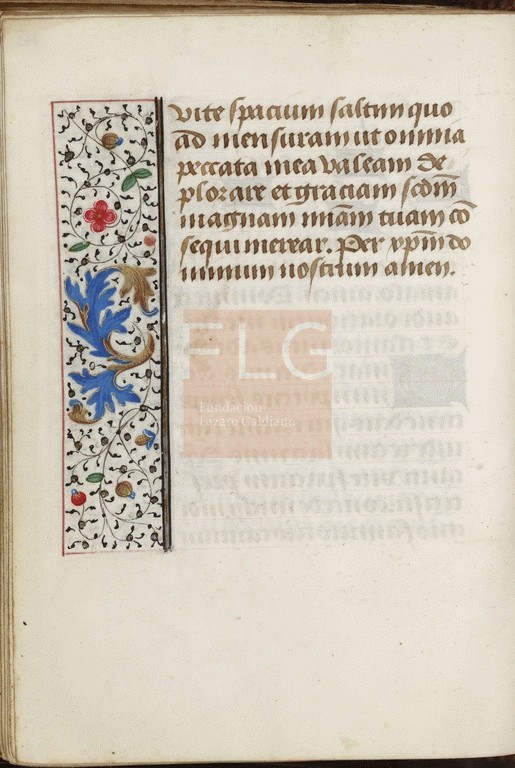 vite spacium saltim quo
ad mensuram ut omnia
peccata mea valeam de
plorare et graciam scdm̄
magnam miam̄ tuam cō
sequi merear. Per xpm̄ do
minum nostrum amen.
FLG
Fundación
Lázaro Galdiano